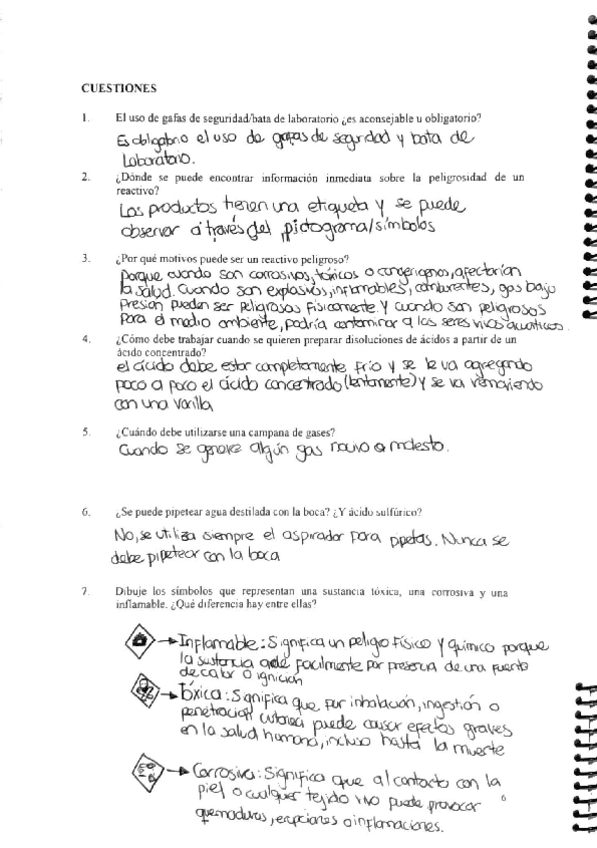 CUESTIONES
1. El uso de gafas de seguridad/bata de laboratorio ¿es aconsejable u obligatorio?
Es obligatorio el uso de gafas de seguridad y bata de
laboratorio.
2. ¿Dónde se puede encontrar información inmediata sobre la peligrosidad de un
reactivo?
Los productos tienen una etiqueta y se puede
observar a través del pictograma/símbolos
3. ¿Por qué motivos puede ser un reactivo peligroso?
Porque cuando son corrosivos, tóxicos o cangerigenos, afectarían
la salud. Cuando son explosivos, inflamables, comburentes, gas bajo
presion pueden ser peligrosos físicamente. Y cuando son peligrosos
para el medio ambiente, podría contaminar a los seres vivos acuaticos.
4. ¿Cómo debe trabajar cuando se quieren preparar disoluciones de ácidos a partir de un
ácido concentrado?
el ácido debe estar completamente frío y se le va agregando
poco a poco el ácido concentrado (lentamente) y se va removiendo
con una varilla
5. ¿Cuándo debe utilizarse una campana de gases?
Cuando se genere algún gas nocivo o molesto.
6. ¿Se puede pipetear agua destilada con la boca? ¿Y ácido sulfúrico?
No, se utiliza siempre el aspirador para pipetas. Nunca se
debe pipetear con la boca
7. Dibuje los símbolos que representan una sustancia tóxica, una corrosiva y una
inflamable. ¿Qué diferencia hay entre ellas?
Inflamable: Significa un peligro físico y químico porque
la sustancia arde facilmente por presencia de una fuente
de calor o ignición
Tóxica: Significa que por inhalación, ingestión o
penetración cutanea puede causar efectos graves
en la salud humana, incluso hasta la muerte
Corrosiva: Significa que al contacto con la
piel o cualquier tejido vivo puede provocar
quemaduras, erupciones o inflamaciones.